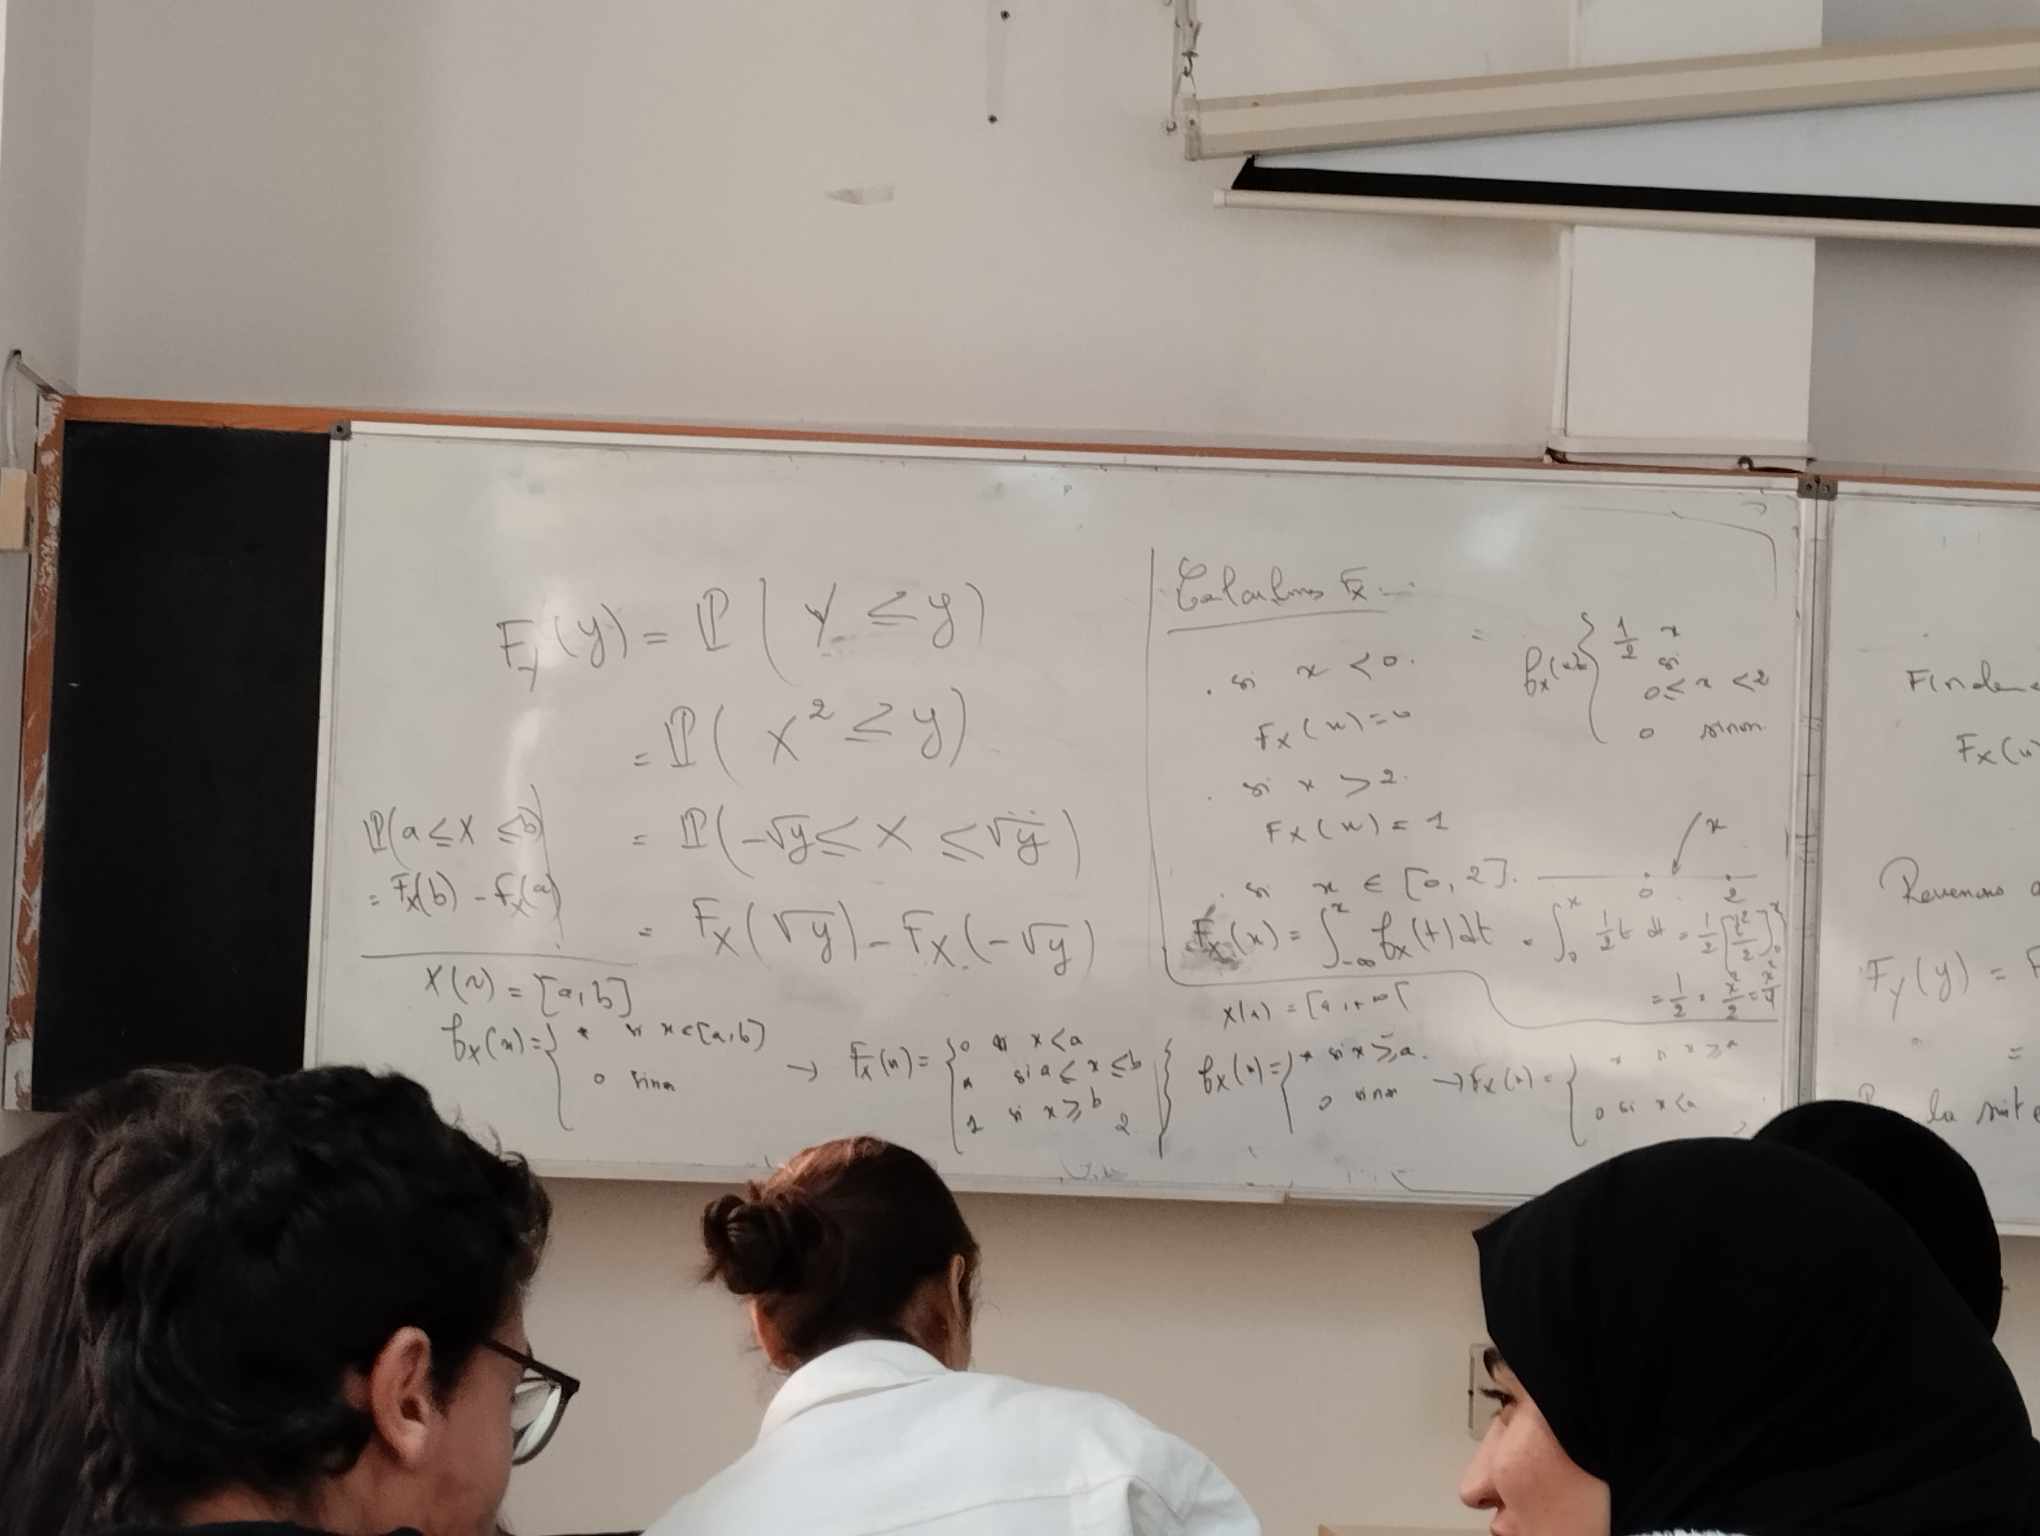 F_Y(y) = ℙ(Y ≤ y)
= ℙ(X² ≤ y)
= ℙ(-√y ≤ X ≤ √y)
= F_X(√y) - F_X(-√y)
ℙ(a ≤ X ≤ b)
= F_X(b) - F_X(a)
X(Ω) = [a,b]
f_X(x) = { * si x ∈ [a,b]
0 sinon
→ F_X(x) = { 0 si x < a
* si a ≤ x ≤ b
1 si x ≥ b
2
Calculons F_X :
f_X(x) = { 1/2 x si 0 ≤ x < 2
0 sinon
. si x < 0.
F_X(x) = 0
. si x > 2.
F_X(x) = 1
. si x ∈ [0,2].
x
0 2
F_X(x) = ∫_{-∞}^{x} f_X(t) dt = ∫_0^x 1/2 t dt = 1/2 [t²/2]_0^x
= 1/2 × x²/2 = x²/4
X(Ω) = [a,+∞[
f_X(x) = { * si x ≥ a.
0 sinon
→ F_X(x) = { * si x ≥ a
0 si x < a
F_X(x
Revenons
F_Y(y) =
=
la suite